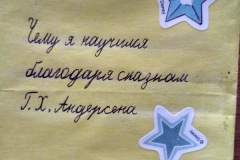 Чему я научился
благодаря сказкам
Г. Х. Андерсена